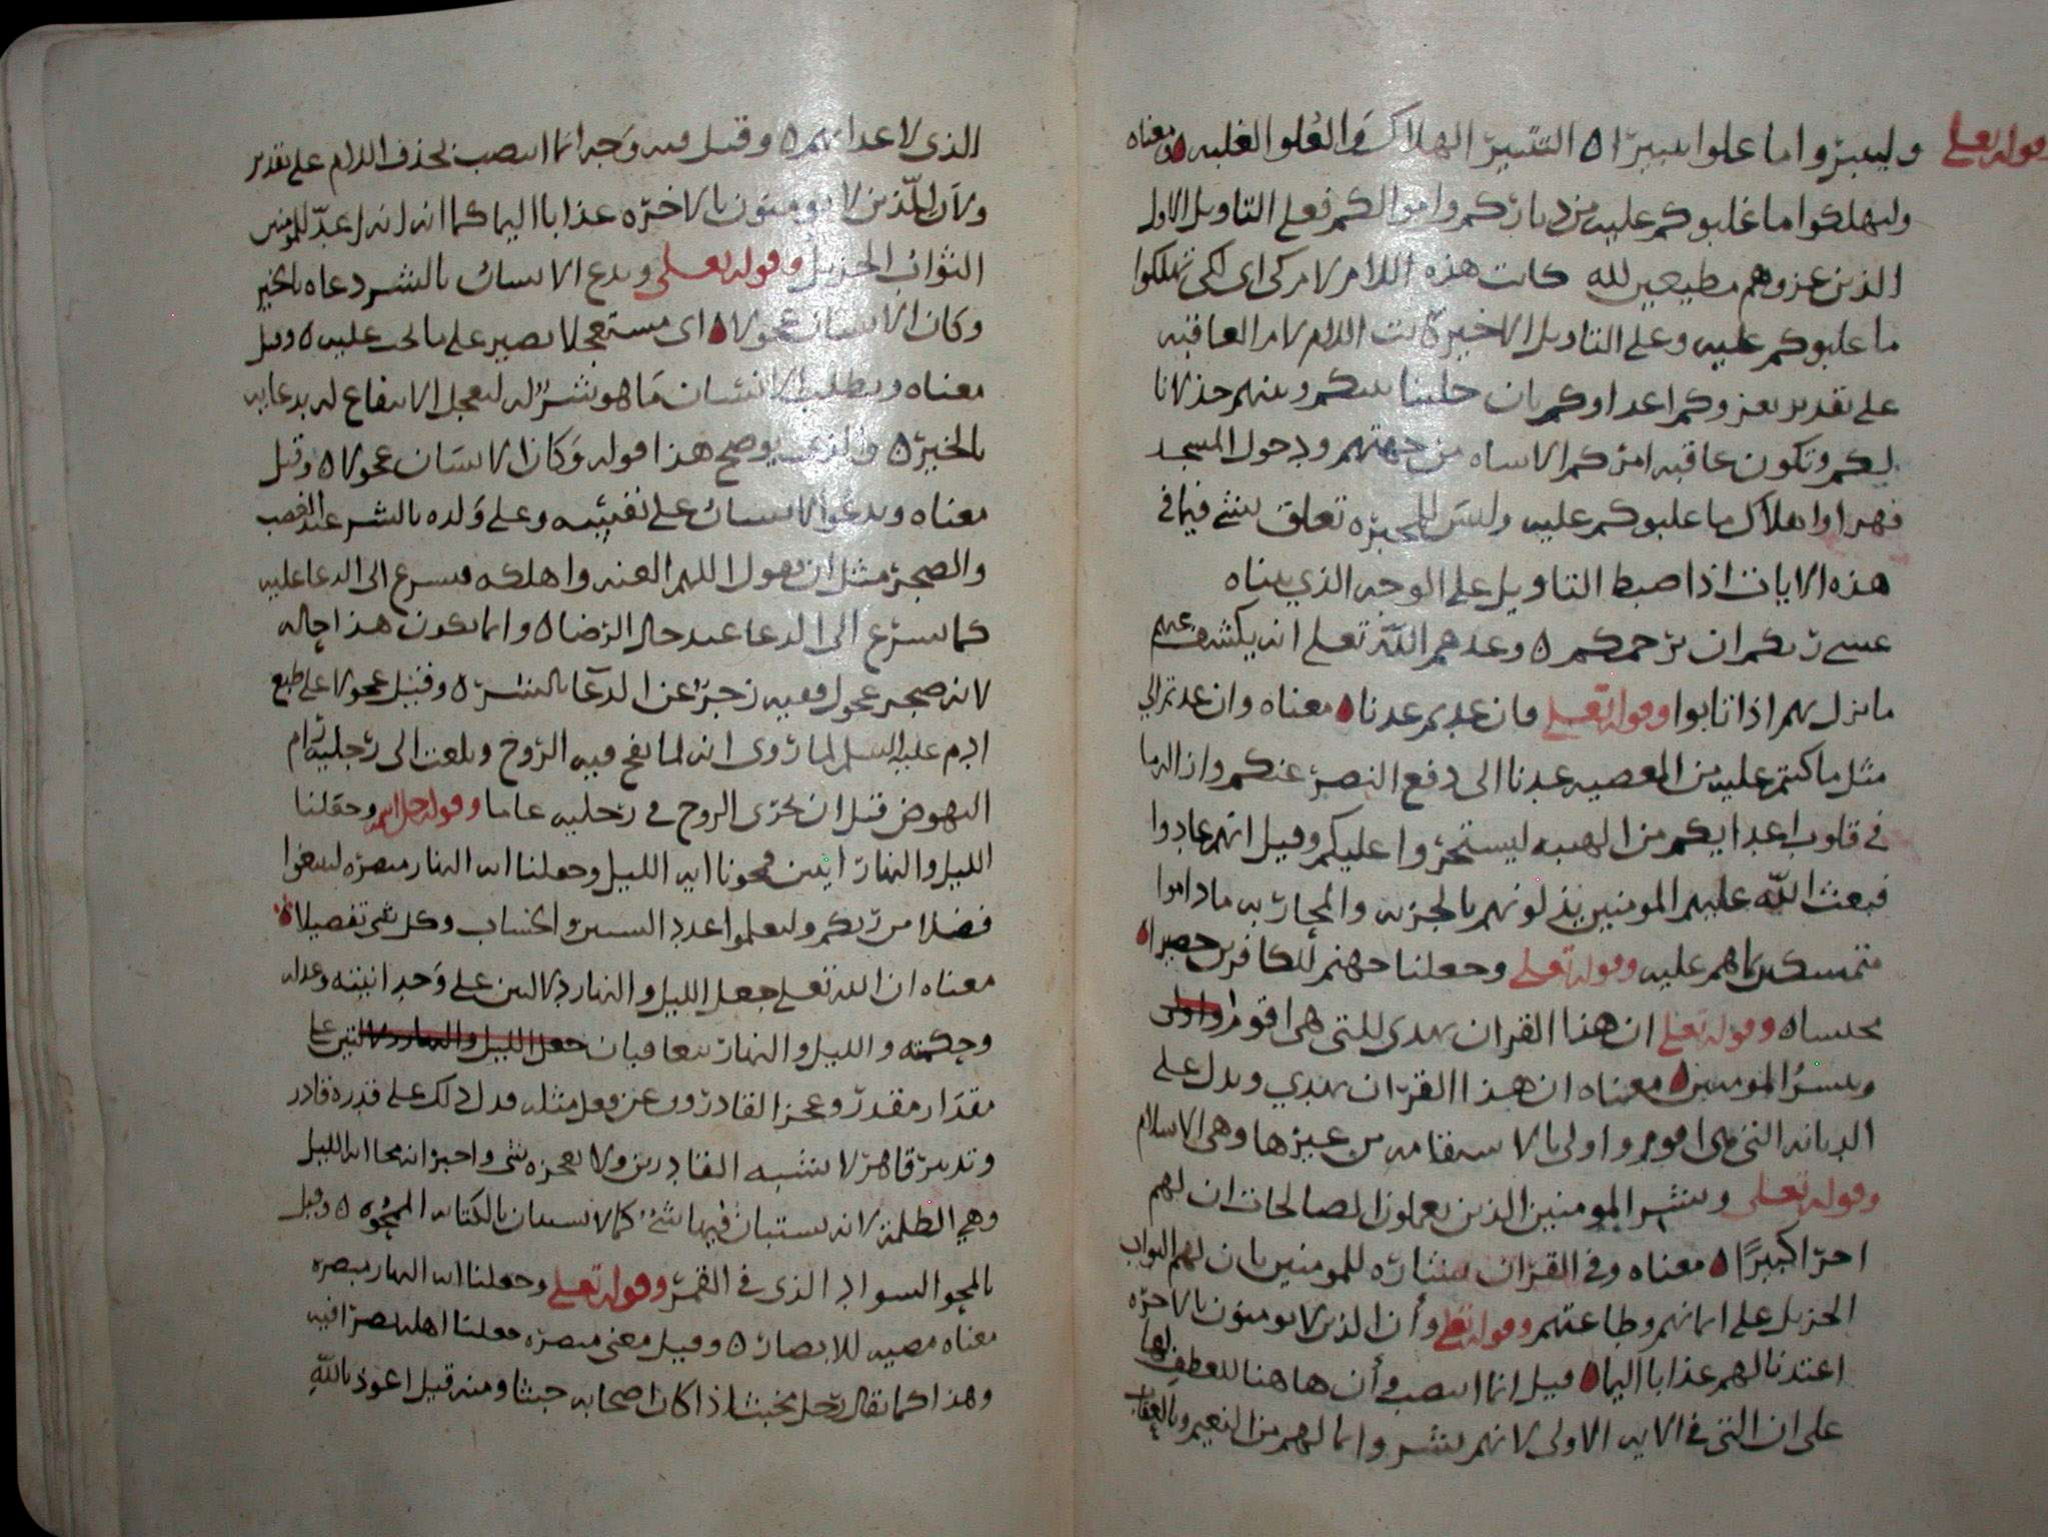 وقوله تعلى وليتبروا ما علوا تتبيرا ۝ التتبير الهلاك والعلو الغلبه ۝ ومعناه
وليهلكوا ما غلبوكم عليه من دياركم واموالكم فعلى التاويل الاول
الذين غزوهم مطيعين لله كانت هذه اللام لام كى اى لكى تهلكوا
ما غلبوكم عليه وعلى التاويل الاخير كانت اللام لام العاقبه
على تقدير بعزوكم اعداوكم بان خلينا بينكم وبينهم خذلانا
لكم وتكون عاقبه امركم الاساه من جهتهم ودخول المسجد
قهرا واهلاك ما غلبوكم عليه وليس للمجبره تعلق بشى فيما فى
هذه الايات اذا ضبط التاويل على الوجه الذي بيناه
عسى ربكم ان يرحمكم ۝ وعدهم الله تعلى انه يكشف عنهم
ما نزل بهم اذا تابوا وقوله تعلى وان عدتم عدنا ۝ معناه وان عدتم الى
مثل ما كنتم عليه من المعصيه عدنا الى دفع النصر عنكم وازاله ما
فى قلوب اعدايكم من الهيبه ليستجروا عليكم وقيل انهم عادوا
فبعث الله عليهم المومنين يذلونهم بالجزيه والمحاربه ما داموا
متمسكين بما هم عليه وقوله تعلى وجعلنا جهنم للكافرين حصيرا ۝
محبسا ۝ وقوله تعلى ان هذا القران يهدى للتى هى اقوم
ويبشر المومنين ۝ معناه ان هذا القران يهدي ويدل على
الديانه التى هى اقوم واولى بالاستقامه من غيرها وهى الاسلام
وقوله تعلى ويبشر المومنين الذين يعملون الصالحات ان لهم
اجرا كبيرا ۝ معناه وفى القران بشاره للمومنين بان لهم الثواب
الجزيل على ايمانهم وطاعتهم وقوله تعلى وأن الذين لا يومنون بالاخره
اعتدنا لهم عذابا اليما ۝ قيل انما انتصب في أن هاهنا للعطف لها
على ان التى فى الايه الاولى لانهم بشروا بما لهم من النعيم وبالعقاب
الذى لاعدايهم ۝ وقيل فيه وجه انما انتصب بحذف اللام على تقدير
ولان الّذين لا يومنون بالاخره عذابا اليما كما انه اعدّ للمومنين
الثواب الجزيل وقوله تعلى ويدع الانسان بالشر دعاه بالخير
وكان الانسان عجولا ۝ اى مستعجلا بصير على ما يجب عليه ۝ وقيل
معناه ويطلب الانسان ما هو شرّ له لتعجل الانتفاع له بدعايه
بالخير ۝ والذى يوضح هذا قوله وكان الانسان عجولا ۝ وقيل
معناه ويدعوا الانسان على نفسه وعلى ولده بالشر عند الغضب
والضجر مثل ان يقول اللهم العنه واهلكه فيسرع الى الدعا عليه
كما يسرع الى الدعا عند حال الرضا ۝ وانما يكون هذا حاله
لانه ضجر عجول ففيه زجر عن الدعا بالشر ۝ وقيل عجولا على طبع
ادم عليه السلم لما روى انه لما نفخ فيه الروح وبلغت الى رجليه رام
النهوض قبل ان تجرى الروح فى رجليه عاما وقوله جل اسمه وجعلنا
الليل والنهار ايتين فمحونا ايه الليل وجعلنا ايه النهار مبصره لتبتغوا
فضلا من ربكم ولتعلموا عدد السنين والحساب وكل شى تفصيلا ۝
معناه ان الله تعلى جعل الليل والنهار دلالتين على وحدانيته وعدله
وحكمته والليل والنهار يتعاقبان جعل الليل والنهار دلالتين على
مقدار مقدر وعجز القادرون عن فعل مثله فدل ذلك على قدرة قادر
وتدبير قاهر لا يشبه القادرين ولا يعجزه شى واخبر انه محا ايه الليل
وهي الظلمة لانه يستبان فيها شئ كما لا يستبان بالكتاب الممحوه ۝ وقيل
بالمحو السواد الذى فى القمر وقوله تعلى وجعلنا ايه النهار مبصره
معناه مضيه للابصار ۝ وقيل معنى مبصره جعلنا اهله بصرا فيه
وهذا كما يقال رجل مخبث اذا كان اصحابه خبثا ومنه قيل اعوذ بالله